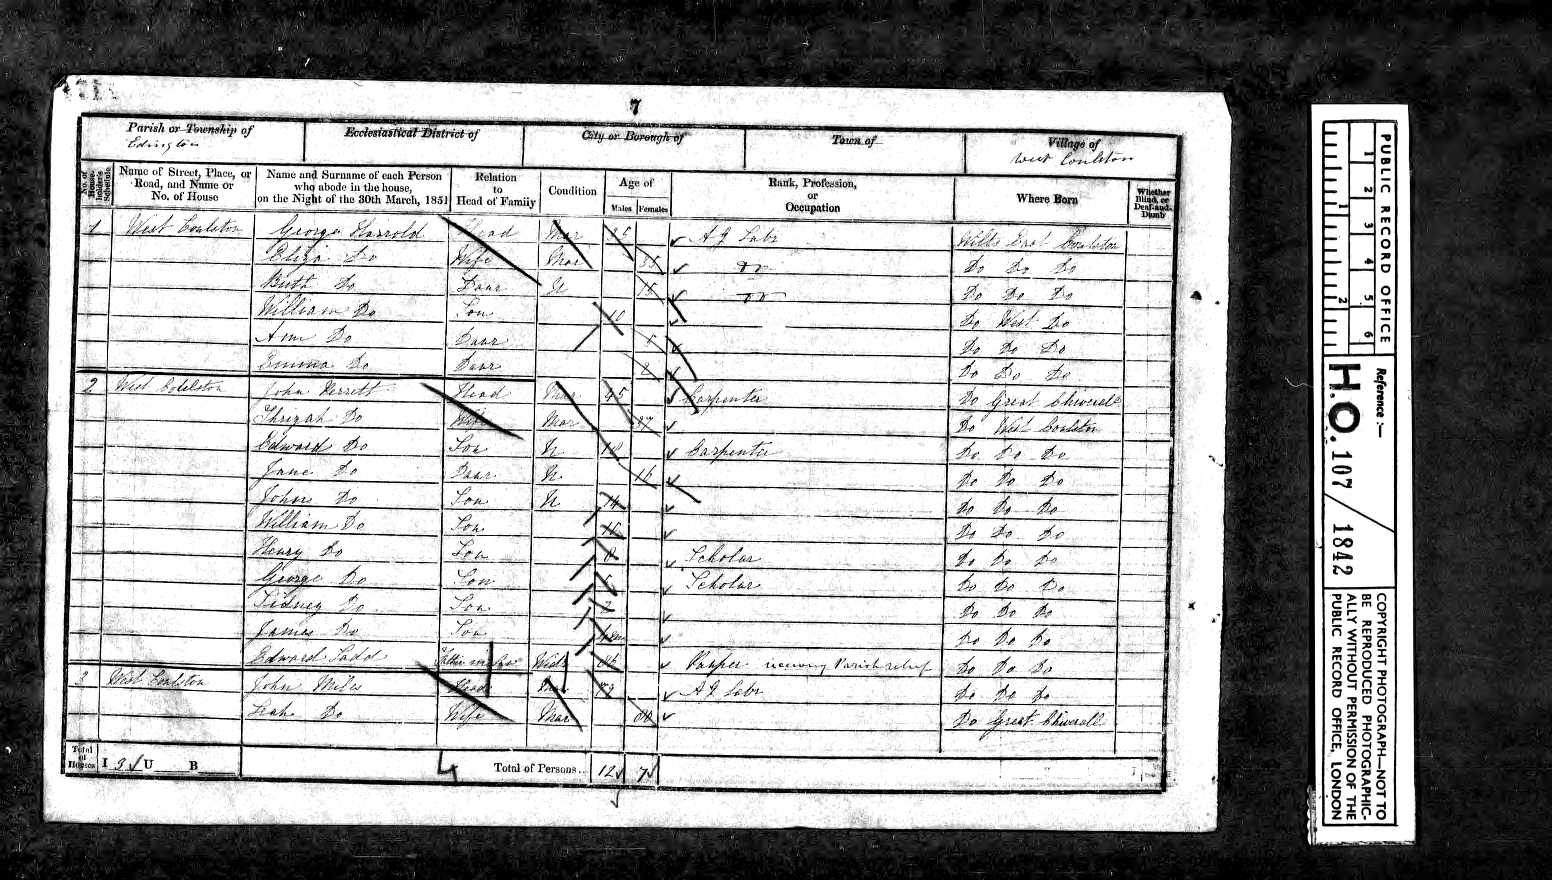 7
Parish or Township of Ecclesiastical District of City or Borough of Town of Village of
Edington West Coulston
No. of House-holder's Schedule Name of Street, Place, or Road, and Name or No. of House Name and Surname of each Person who abode in the house, on the Night of the 30th March, 1851 Relation to Head of Family Condition Age of Males Females Rank, Profession, or Occupation Where Born Whether Blind, or Deaf-and-Dumb
1 West Coulston George Harrold Head Mar Ag Labr Wilts East Coulston
Eliza Do Wife Mar Do Do Do
Do Daur U 15 Do Do Do
William Do Son 10 Do West Do
Ann Do Daur Do Do Do
Emma Do Daur 2 Do Do Do
2 West Coulston John Head Mar 45 Carpenter Do Great Cheverell
Thirzah Do Wife Mar Do West Coulston
Edward Do Son U 18 Carpenter Do Do Do
Jane Do Daur U 16 Do Do Do
John Do Son U 14 Do Do Do
William Do Son Do Do Do
Henry Do Son 8 Scholar Do Do Do
George Do Son 5 Scholar Do Do Do
Sidney Do Son Do Do Do
James Do Son Do Do Do
Edward Father in Law Widr Pauper receiving Parish relief Do Do Do
3 West Coulston John Head Mar Ag Labr Do Do Do
Leah Do Wife Mar Do Great Cheverell
Total of Houses I 3 U B 4 Total of Persons 12 7
PUBLIC RECORD OFFICE
1 2 3 4 5 6
1 2
Reference :—
H.O. 107 / 1842
COPYRIGHT PHOTOGRAPH—NOT TO
BE REPRODUCED PHOTOGRAPHIC-
ALLY WITHOUT PERMISSION OF THE
PUBLIC RECORD OFFICE, LONDON